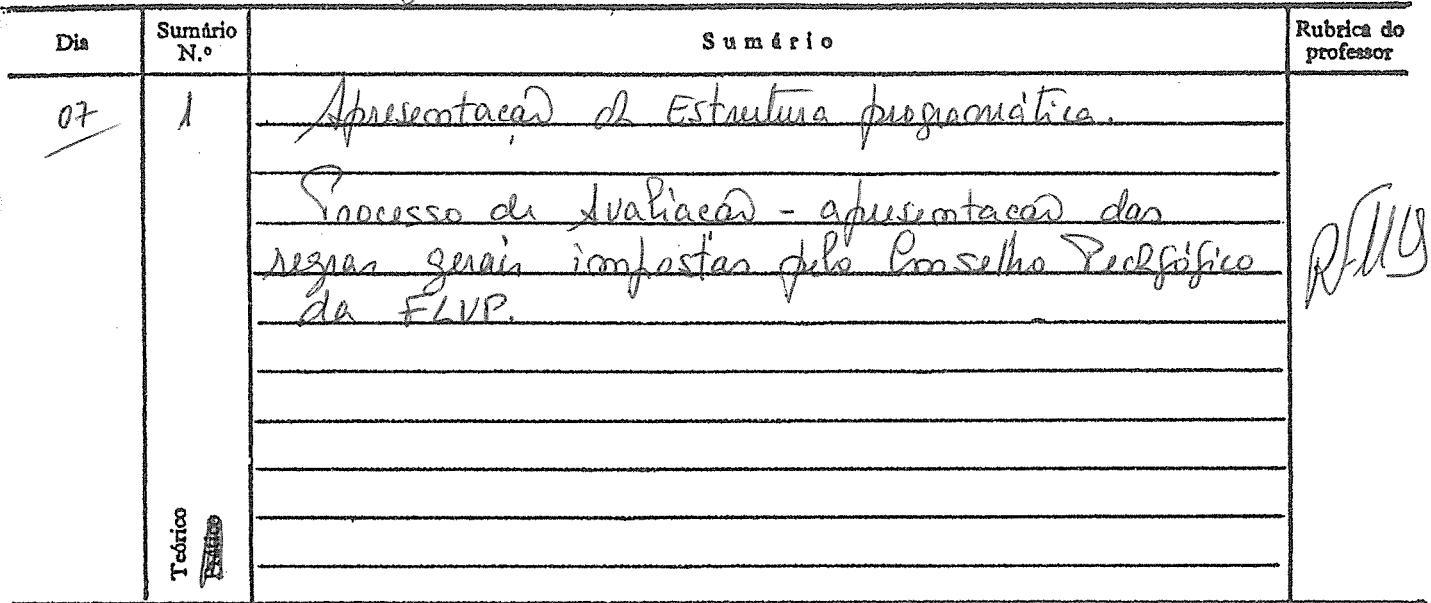 Dia Sumário N.º Sumário Rubrica do professor
07 1 Apresentação da Estrutura programática.
Processo de Avaliação - apresentação das
regras gerais impostas pelo Conselho Pedagógico
da FLUP.
Teórico
Prático